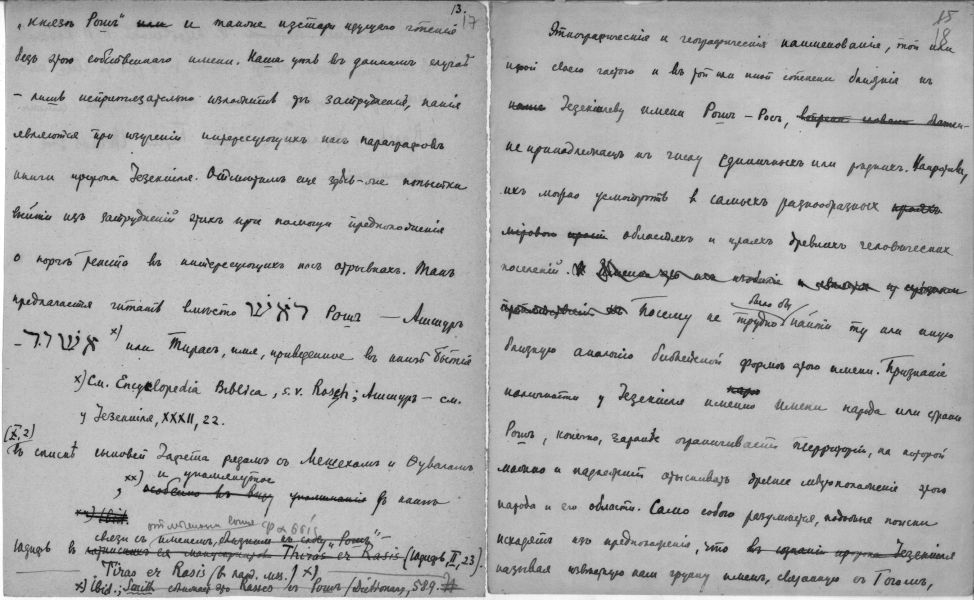 13.
17
„князь Рошъ“ или и также изстари идущаго чтенія
безъ этого собственнаго имени. Наша цѣль въ данномъ случаѣ
– лишь непритязательно изложить тѣ затрудненія, какія
являются при изученіи интересующихъ насъ параграфовъ
книги пророка Іезекіиля. Отмѣтимъ еще здѣсь-же попытки
выйти изъ затрудненій этихъ при помощи предположенія
о порчѣ текста въ интересующихъ насъ отрывкахъ. Такъ
предлагается читать вмѣсто Рошъ — Ашшуръ
– x) или Тирасъ, имя, приведенное въ книгѣ Бытія
x) См. Encyclopedia Biblica, s.v. Rosch; Ашшуръ – см.
у Іезекіиля, XXXII, 22.
(X, 2)
въ спискѣ сыновей Іафета рядомъ съ Мешехомъ и Ѳуваломъ
и упомянутое
, xx) особенно въ виду упоминанія въ книгѣ
xx) ibid.
отмѣченная выше
связи съ именемъ, „Рошъ“
Іудиѳь въ Thiras ех Rasis (Іудиѳь II, 23).
Tiras ех Rasis x)
x) ibid.; Smith Rasses съ Рошъ /Dictionary, 589.
85
18
Этнографическія и географическія наименованія, той или
иной своею частью и въ той или иной степени близкія къ
Іезекіилеву имени Рошъ – Росъ,
не принадлежатъ къ числу единичныхъ или рѣдкихъ. Напротивъ,
ихъ можно усмотрѣть въ самыхъ разнообразныхъ
областяхъ и краяхъ древнихъ человѣческихъ
поселеній.
было бы
Посему не трудно найти ту или иную
близкую аналогію библейской формѣ этого имени. Признаніе
наличности у Іезекіиля именно имени народа или страны
Рошъ, конечно, заранѣе ограничиваетъ территорію, на которой
можно и надлежитъ отыскивать древнее мѣстоположеніе этого
народа и его области. Само собою разумѣется, подобные поиски
исходятъ изъ предположенія, что Іезекіиля
называя извѣстную намъ группу именъ, связанную съ Гогомъ,